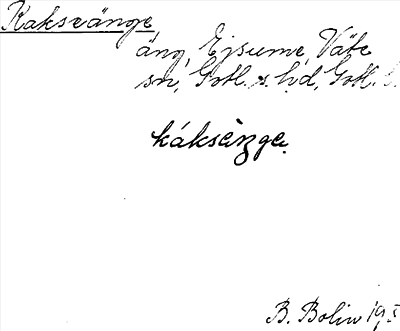 Kakseänge
äng, Ejsume, Väte
sn, Gotl. s. hd, Gotl. l.
kàksèŋge.
B. Bolin 195